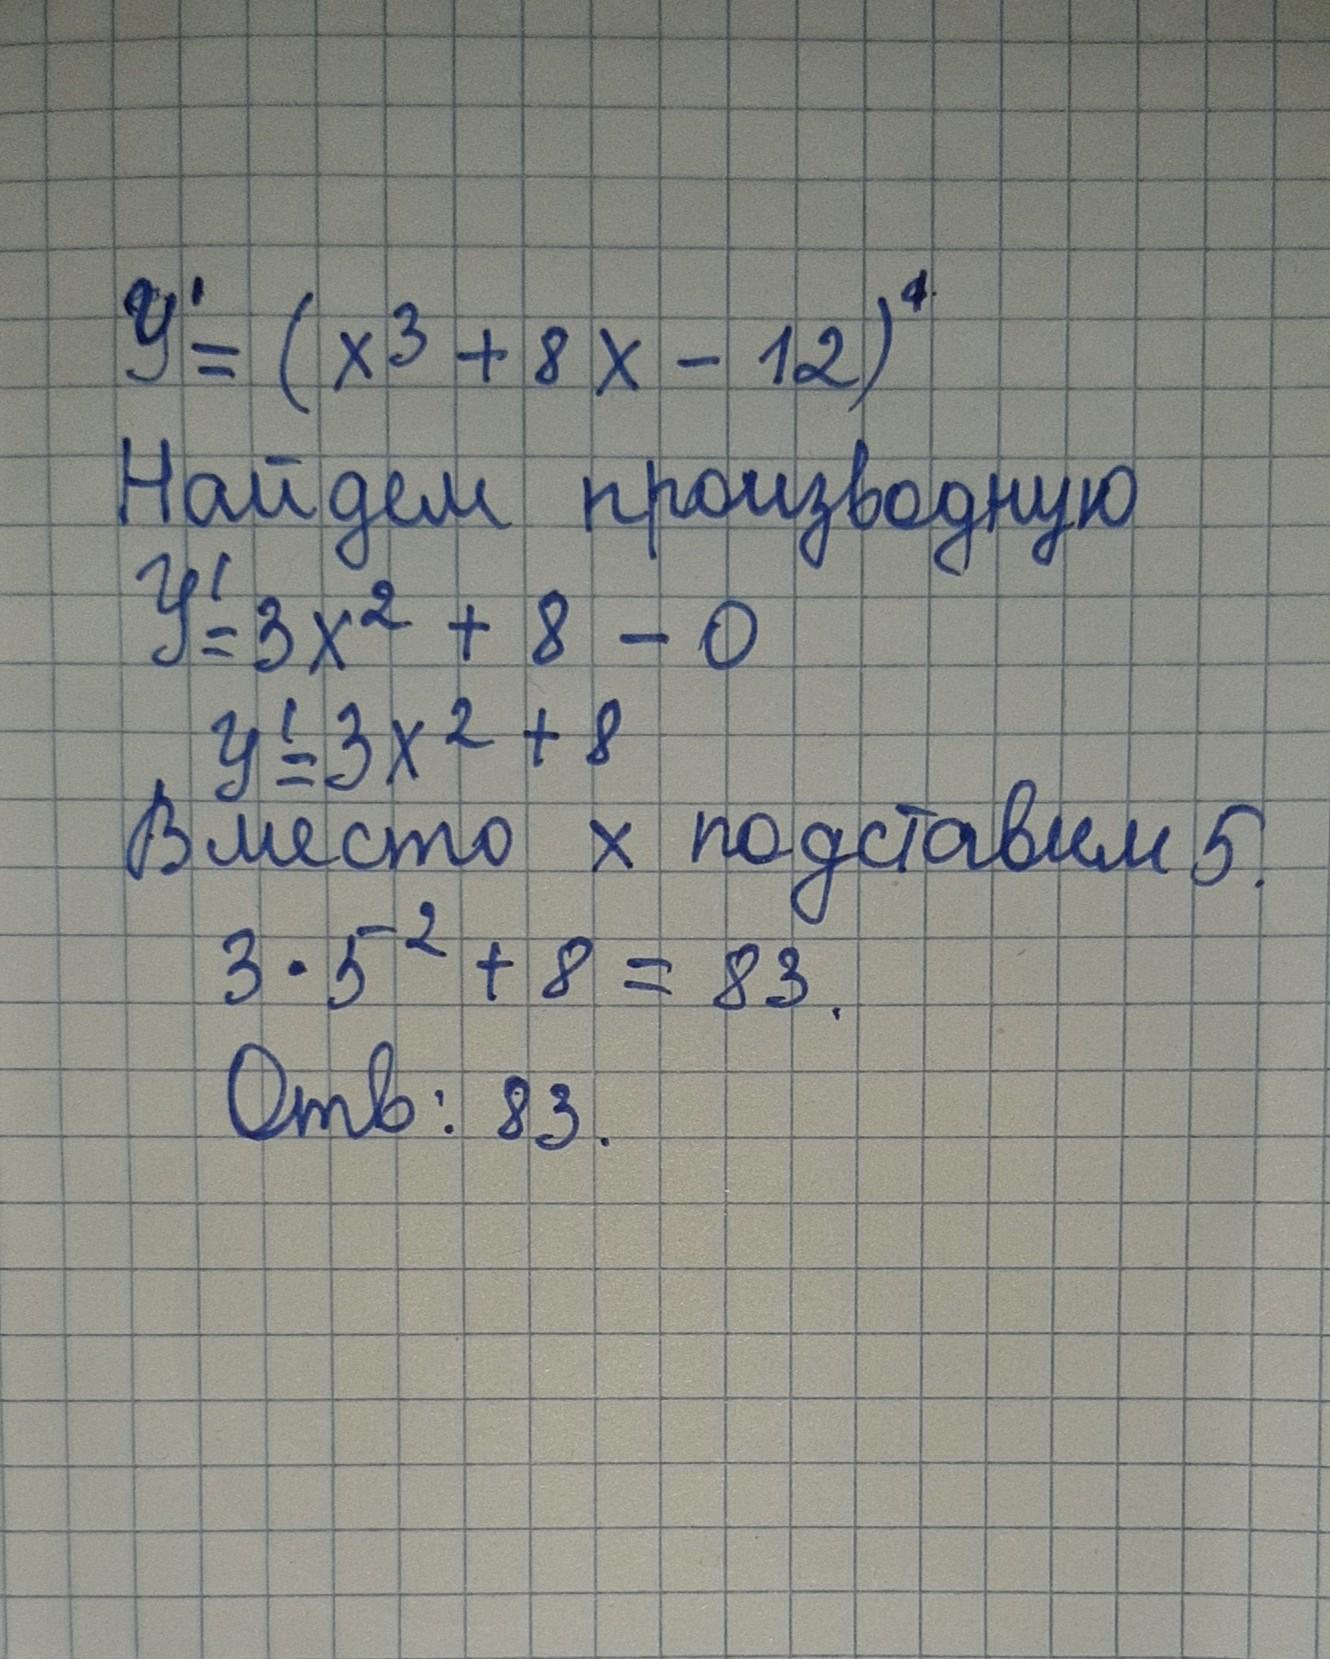 y' = (x³ + 8x - 12)'
Найдем производную
y' = 3x² + 8 - 0
y' = 3x² + 8
Вместо x подставим 5.
3 · 5² + 8 = 83.
Отв: 83.